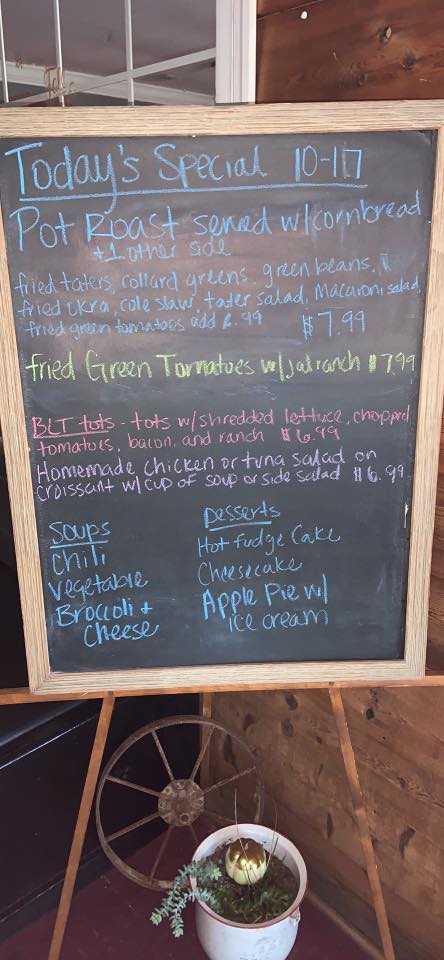 Today's Special 10-17
Pot Roast served w/cornbread
+1 other side
fried taters, collard greens, green beans,
fried okra, cole slaw, tater salad, Macaroni salad,
fried green tomatoes add .99 $7.99
fried Green Tomatoes w/jal ranch $7.99
BLT tots - tots w/shredded lettuce, chopped
tomatoes, bacon, and ranch $6.99
Homemade chicken or tuna salad on
croissant w/cup of soup or side salad $6.99
Soups
Chili
Vegetable
Broccoli +
Cheese
Desserts
Hot fudge Cake
Cheesecake
Apple Pie w/
ice cream